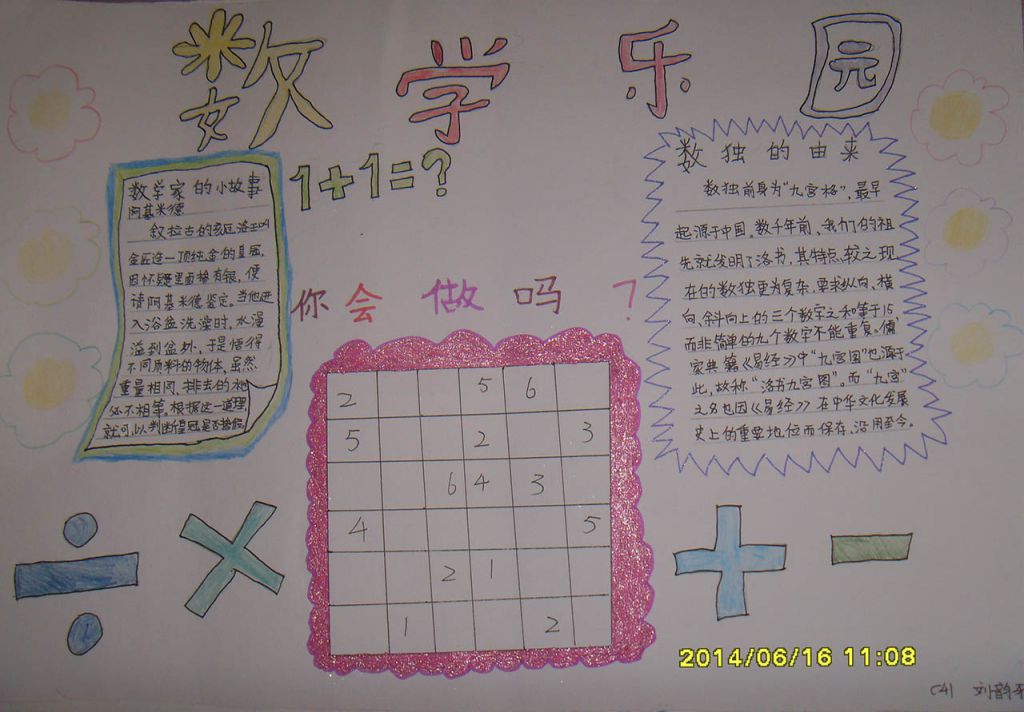 数学乐园
1+1=?
数学家的小故事
阿基米德
叙拉古的
金匠造一顶纯金的皇冠,
因怀疑里面掺有银,便
请阿基米德鉴定。当他进
入浴盆洗澡时,水漫
溢到盆外,于是悟得
不同质料的物体,虽然
重量相同,排去的水
必不相等。根据这一道理,
就可以判断皇冠是否掺假
数独的由来
数独前身为“九宫格”,最早
起源于中国。数千年前,我们的祖
先就发明了洛书,其特点较之现
在的数独更为复杂,要求纵向、横
向、斜向上的三个数字之和等于15,
而非简单的九个数字不能重复。儒
家典籍《易经》中“九宫图”也源于
此,故称“洛书九宫图”。而“九宫”
之名也因《易经》在中华文化发展
史上的重要地位而保存、沿用至今。
你会做吗?
2 5 6
5 2 3
6 4 3
4 5
2 1
1 2
÷ × + -
2014/06/16 11:08
(4) 刘韵